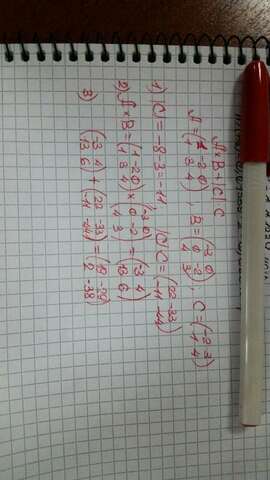 A×B+|C|C
A=(1 -2 0
1 3 4), B=(-3 0
0 -2
4 3), C=(-2 3
1 4)
1) |C|=-8-3=-11 |C|C=(22 -33
-11 -44)
2) A×B=(1 -2 0
1 3 4)×(-3 0
0 -2
4 3)=(-3 4
13 6)
3) (-3 4
13 6)+(22 -33
-11 -44)=(19 -29
2 -38)